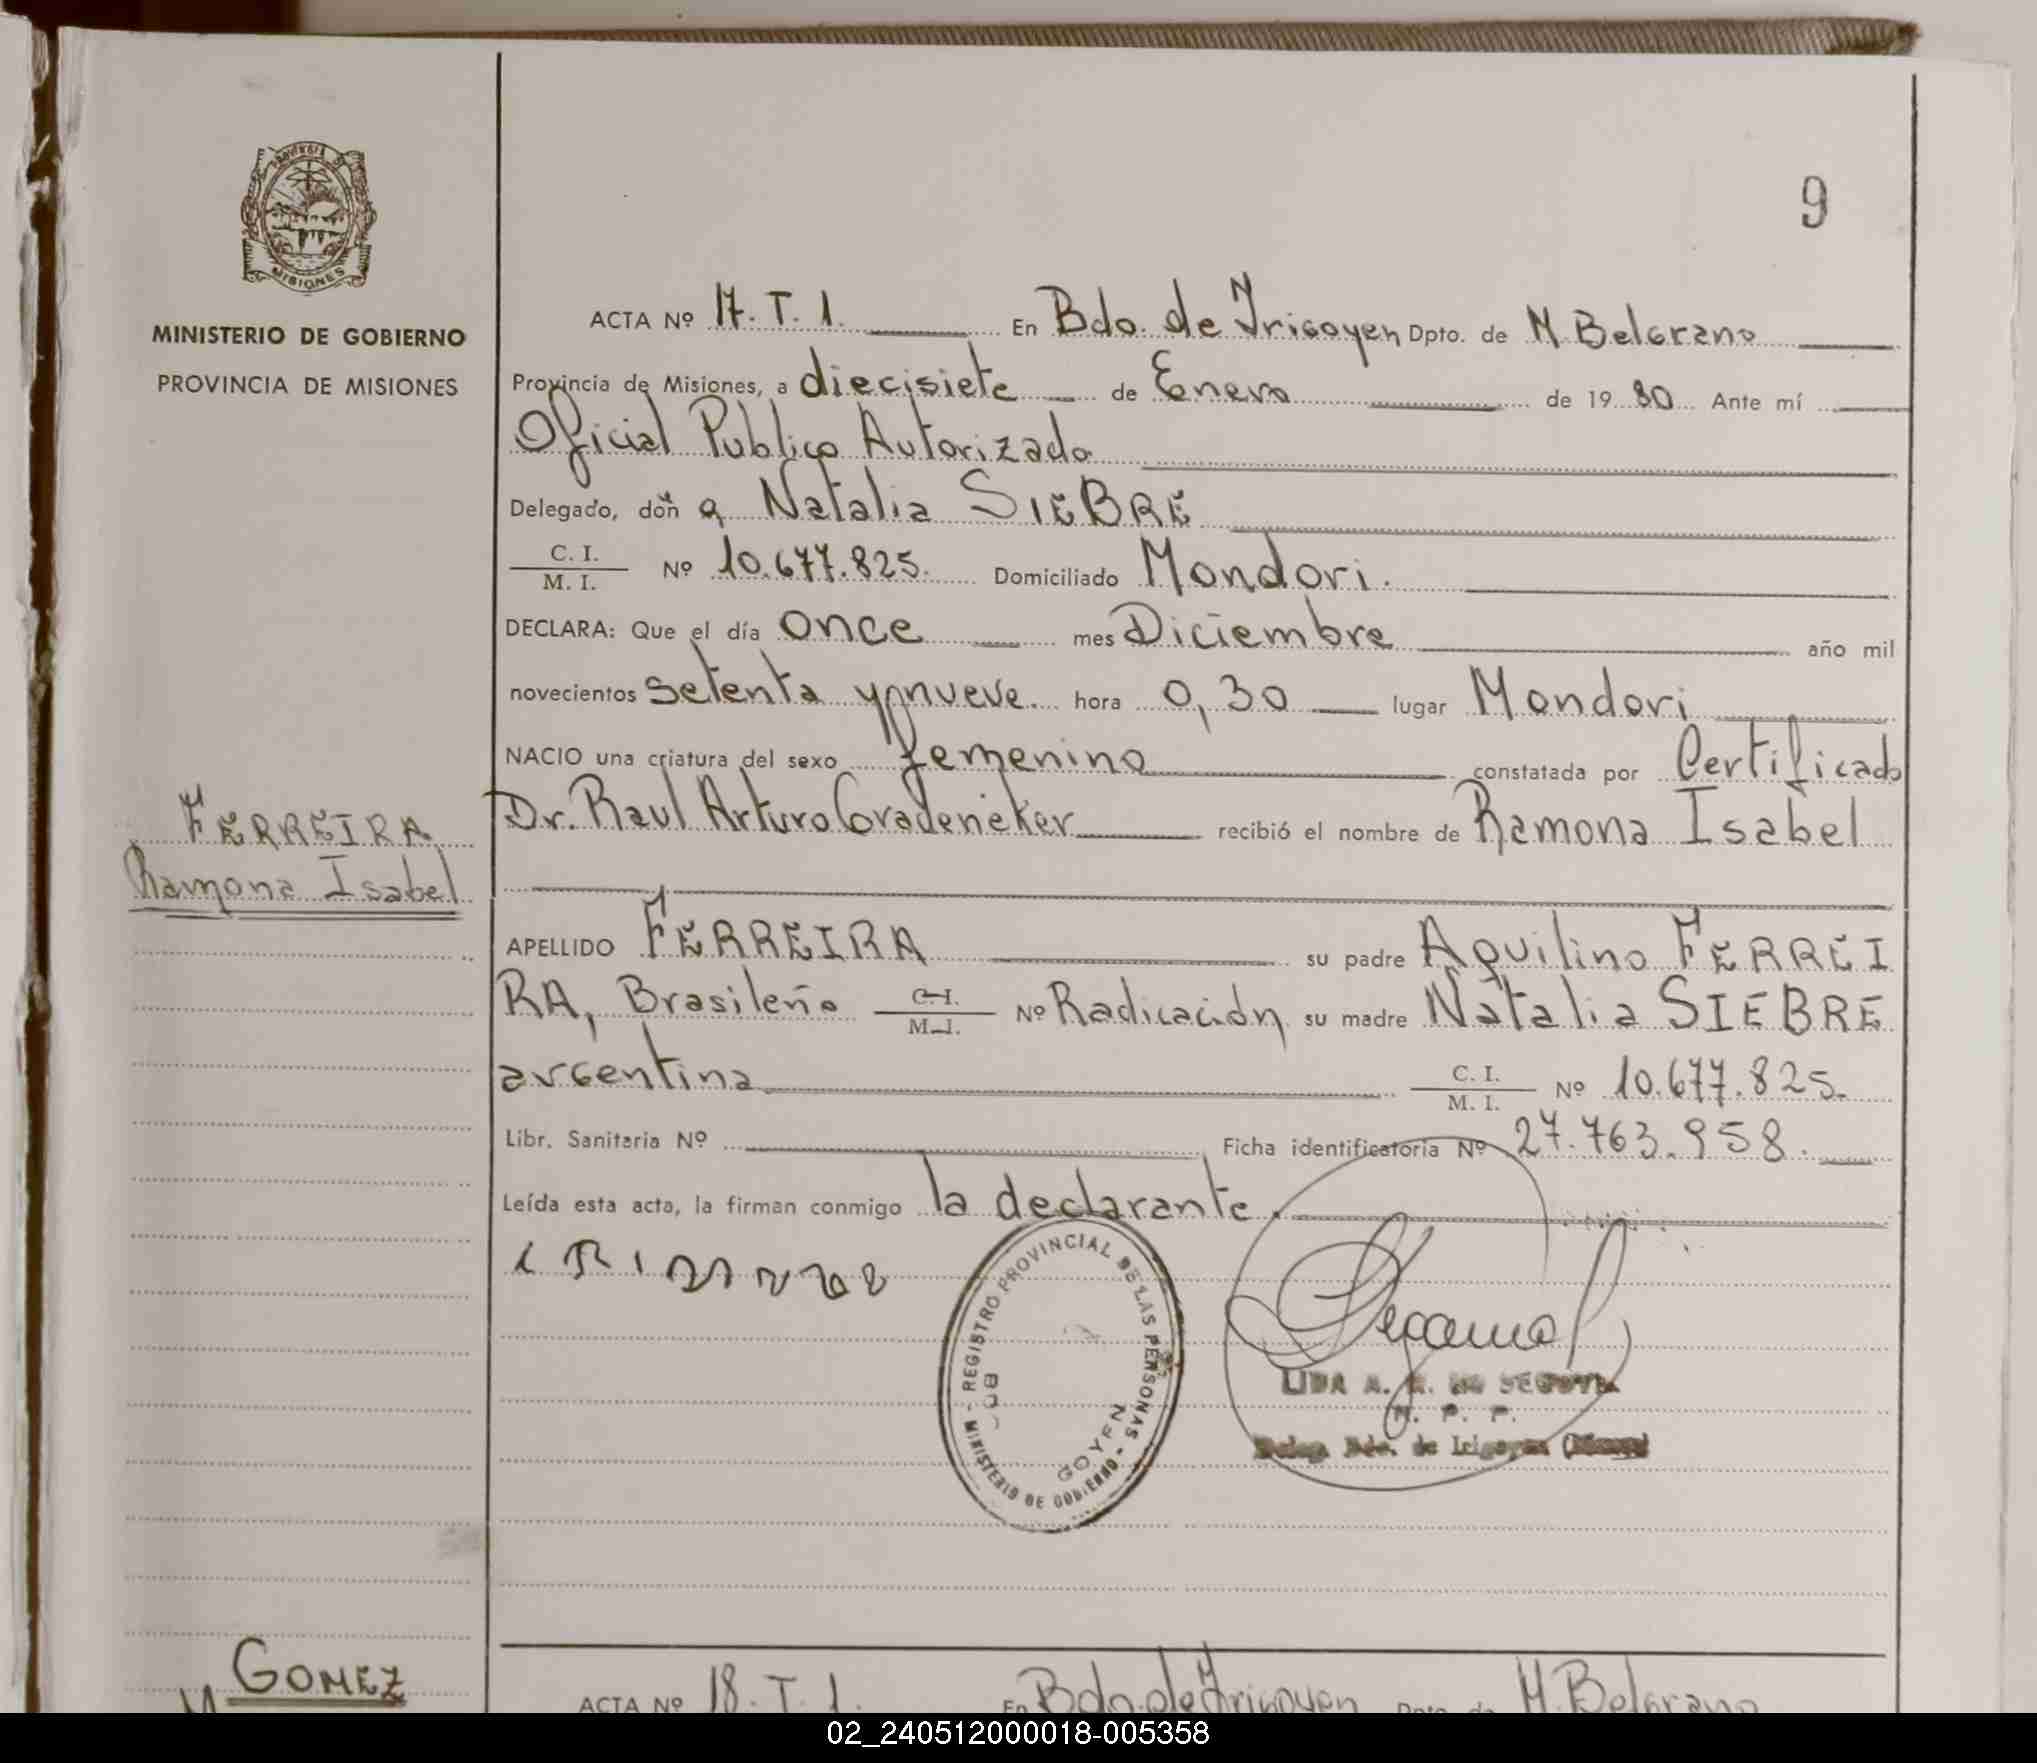 9
PROVINCIA DE
MISIONES
MINISTERIO DE GOBIERNO
PROVINCIA DE MISIONES
ACTA Nº 17. T. 1. En Bdo. de Irigoyen Dpto. de M. Belgrano
Provincia de Misiones, a diecisiete de Enero de 19 80 Ante mí
Oficial Publico Autorizado
Delegado, doñ a Natalia SIEBRE
C. I.
M. I. Nº 10.677.825. Domiciliado Mondori.
DECLARA: Que el día once mes Diciembre año mil
novecientos setenta y nueve. hora 0,30 lugar Mondori
NACIO una criatura del sexo femenino constatada por Certificado
Dr. Raul Arturo Gradeneker recibió el nombre de Ramona Isabel
FERREIRA
Ramona Isabel
APELLIDO FERREIRA su padre Aquilino FERREI
RA, Brasileño C. I. M. I. Nº Radicación su madre Natalia SIEBRE
argentina C. I. M. I. Nº 10.677.825.
Libr. Sanitaria Nº Ficha identificatoria Nº 27.763.958.
Leída esta acta, la firman conmigo la declarante.
MINISTERIO DE GOBIERNO - REGISTRO PROVINCIAL DE LAS PERSONAS -
GOYEN
LIDA A.
de Irigoyen
GOMEZ
ACTA Nº 18. T. 1. En Bdo. de Irigoyen Dpto. de M. Belgrano
02_240512000018-005358